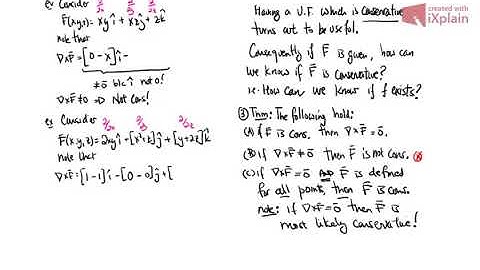 ex Consider ∂/∂x ∂/∂y ∂/∂z
F̄(x,y,z) = xy î + xz ĵ + z k̂
note that
∇×F̄ = [0 - x] î -
≠0 b/c î not 0!
∇×F̄ ≠ 0 ⇒ Not Cons!
ex Consider ∂/∂x ∂/∂y ∂/∂z
F̄(x,y,z) = 2xy î + [x²+z] ĵ + [y+2z] k̂
note that
∇×F̄ = [1-1] î - [0-0] ĵ + [
Having a V.F. which is conservative
turns out to be useful.
Consequently if F̄ is given, how can
we know if F̄ is conservative?
i.e. How can we know if f exists?
③ Thm: The following hold:
(A) If F̄ is cons. then ∇×F̄ = 0̄.
(B) If ∇×F̄ ≠ 0̄ then F̄ is not cons.
(C) if ∇×F̄ = 0̄ AND F̄ is defined
for all points, then F̄ is cons.
note: if ∇×F̄ = 0̄ then F̄ is
most likely conservative!
created with
iXplain